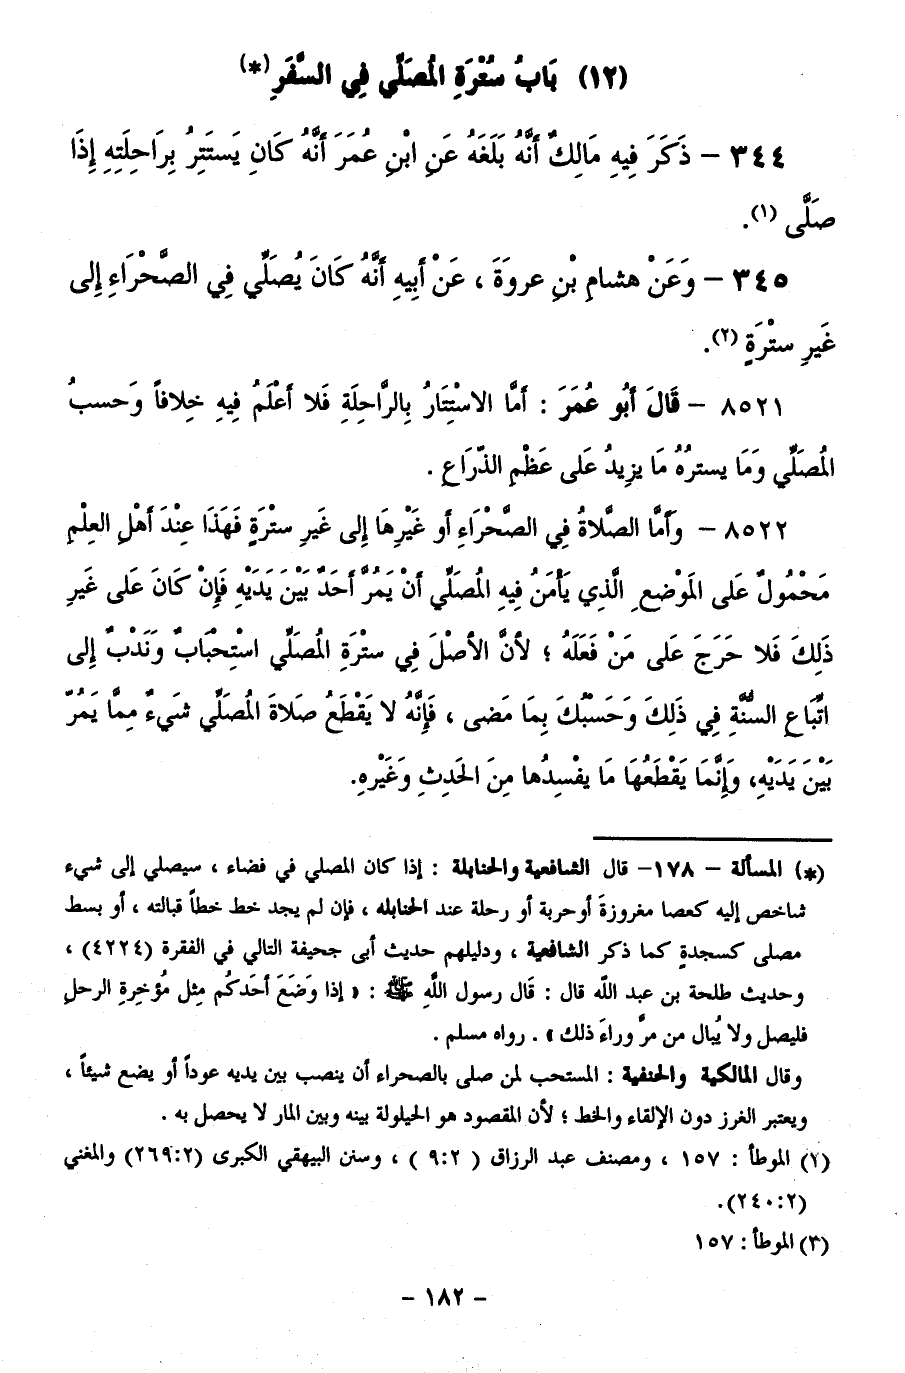 (١٢) بَابُ سُتْرَةِ المُصَلِّي فِي السَّفَرِ (*)
٣٤٤ – ذَكَرَ فِيهِ مَالِكٌ أَنَّهُ بَلَغَهُ عَنِ ابْنِ عُمَرَ أَنَّهُ كَانِ يَستَتِرُ بِرَاحِلَتِهِ إِذَا
صَلَّى (١).
٣٤٥ – وَعَنْ هشامِ بْنِ عروَةَ ، عَنْ أَبِيهِ أَنَّهُ كَانَ يُصَلِّي فِي الصَّحْرَاءِ إِلى
غَيرِ ستْرَةٍ (٢).
٨٥٢١ – قَالَ أَبُو عُمَرَ : أَمَّا الاستْتِتَارُ بِالرَّاحِلَةِ فَلا أَعْلَمُ فِيهِ خِلافاً وَحسبُ
المُصَلِّي وَمَا يسترُهُ مَا يزِيدُ عَلى عَظْمِ الذّرَاعِ .
٨٥٢٢ – وأَمَّا الصَّلاةُ فِي الصَّحْرَاءِ أو غَيْرِهَا إِلى غَيرِ ستْرَةٍ فَهَذَا عِنْدَ أَهْلِ العِلْمِ
مَحْمُولٌ عَلى المَوْضعِ الَّذِي يَأْمَنُ فِيهِ المُصَلِّي أَنْ يَمُرَّ أَحَدٌ بَيْنَ يَدَيْهِ فَإِنْ كَانَ عَلى غَيرِ
ذَلِكَ فَلا حَرَجَ عَلى مَنْ فَعَلَهُ ؛ لأنَّ الأصْلَ فِي سترَةِ المُصَلِّي استِحْبَابٌ وَنَدْبٌ إِلى
اتِّبَاعِ السُّنَّةِ فِي ذَلِكَ وَحَسْبُكَ بِمَا مَضى ، فَإِنَّهُ لا يَقْطَعُ صَلاةَ المُصَلِّي شَيءٌ مِمَّا يَمُرُّ
بَيْنَ يَدَيْهِ، وَإِنَّمَا يَقْطَعُهَا مَا يفْسِدُها مِنَ الحَدِثِ وَغَيْرِهِ.
(*) المسألة – ١٧٨– قال الشافعية والحنابلة : إذا كان المصلي في فضاء ، سيصلي إلى شيء
شاخص إليه كعصا مغروزةَ أوحربة أو رحلة عند الحنابله ، فإن لم يجد خط خطاً قبالته ، أو بسط
مصلى كسجدةٍ كما ذكر الشافعية ، ودليلهم حديث أبى جحيفة التالي في الفقرة (٤٢٢٤) ،
وحديث طلحة بن عبد اللَّه قال : قَال رسول اللَّهِ ﷺ : « إذا وضَعَ أحَدكُم مِثل مُؤخِرةِ الرحلِ
فليصل ولا يُبال من مرَّ وراءَ ذلك » . رواه مسلم .
وقال المالكية والحنفية : المستحب لمن صلى بالصحراء أن ينصب بين يديه عوداً أو يضع شيئاً ،
ويعتبر الغرز دون الإلقاء والخط ؛ لأن المقصود هو الحيلولة بينه وبين المار لا يحصل به .
(٢) الموطأ : ١٥٧ ، ومصنف عبد الرزاق ( ٩:٢ ) ، وسنن البيهقي الكبرى (٢٦٩:٢) والمغني
(٢٤٠:٢).
(٣) الموطأ : ١٥٧
– ١٨٢ –